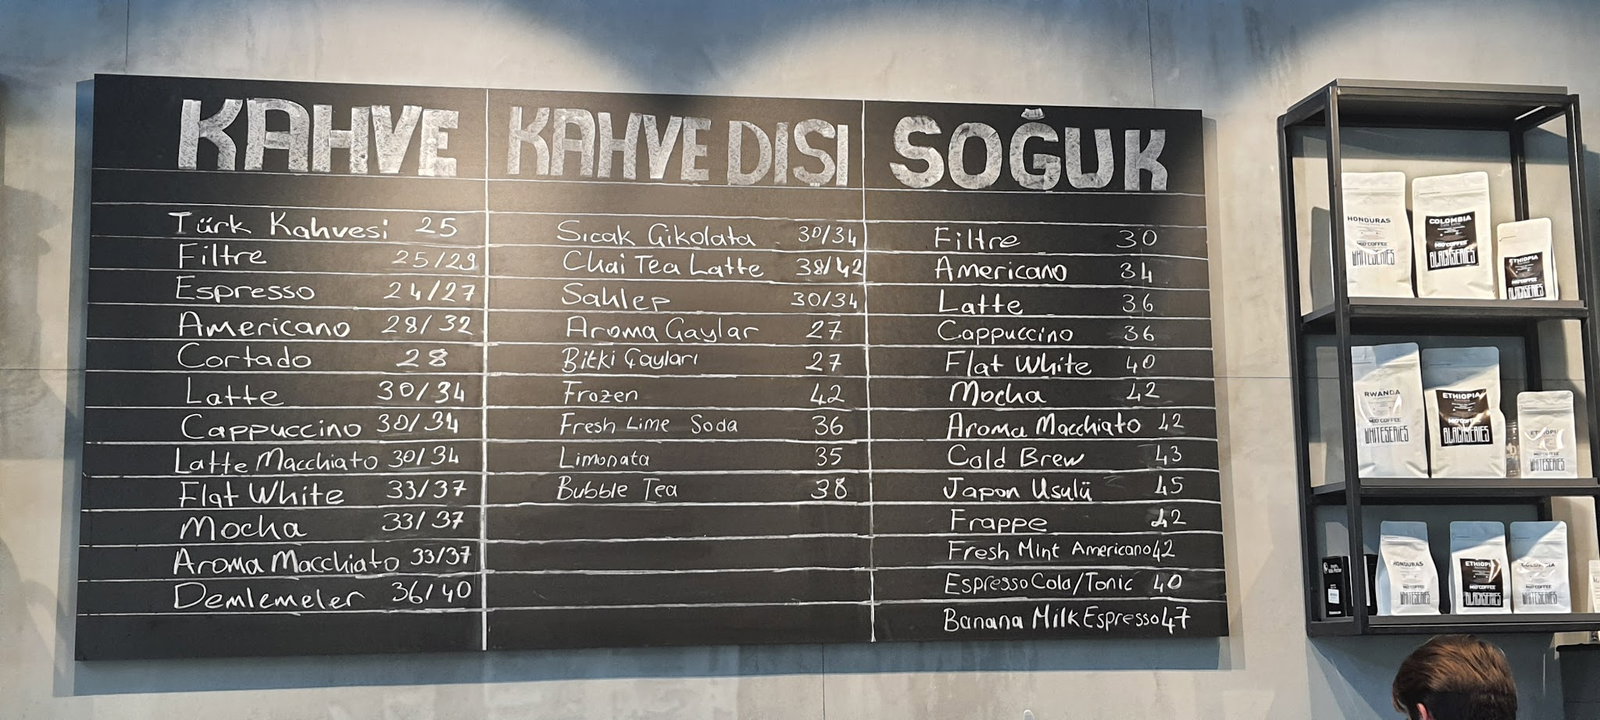 KAHVE
Türk Kahvesi 25
Filtre 25/29
Espresso 24/27
Americano 28/32
Cortado 28
Latte 30/34
Cappuccino 30/34
Latte Macchiato 30/34
Flat White 33/37
Mocha 33/37
Aroma Macchiato 33/37
Demlemeler 36/40
KAHVE DIŞI
Sıcak Çikolata 30/34
Chai Tea Latte 38/42
Sahlep 30/34
Aroma Çaylar 27
Bitki Çayları 27
Frozen 42
Fresh Lime Soda 36
Limonata 35
Bubble Tea 38
SOĞUK
Filtre 30
Americano 34
Latte 36
Cappuccino 36
Flat White 40
Mocha 42
Aroma Macchiato 42
Cold Brew 43
Japon Usulü 45
Frappe 42
Fresh Mint Americano 42
Espresso Cola/Tonic 40
Banana Milk Espresso 47
HONDURAS
WHITESERIES
COLOMBIA
BLACKSERIES
ETHIOPIA
BLACKSERIES
RWANDA
WHITESERIES
ETHIOPIA
BLACKSERIES
ETHIOPIA
WHITESERIES
HONDURAS
WHITESERIES
ETHIOPIA
BLACKSERIES
WHITESERIES